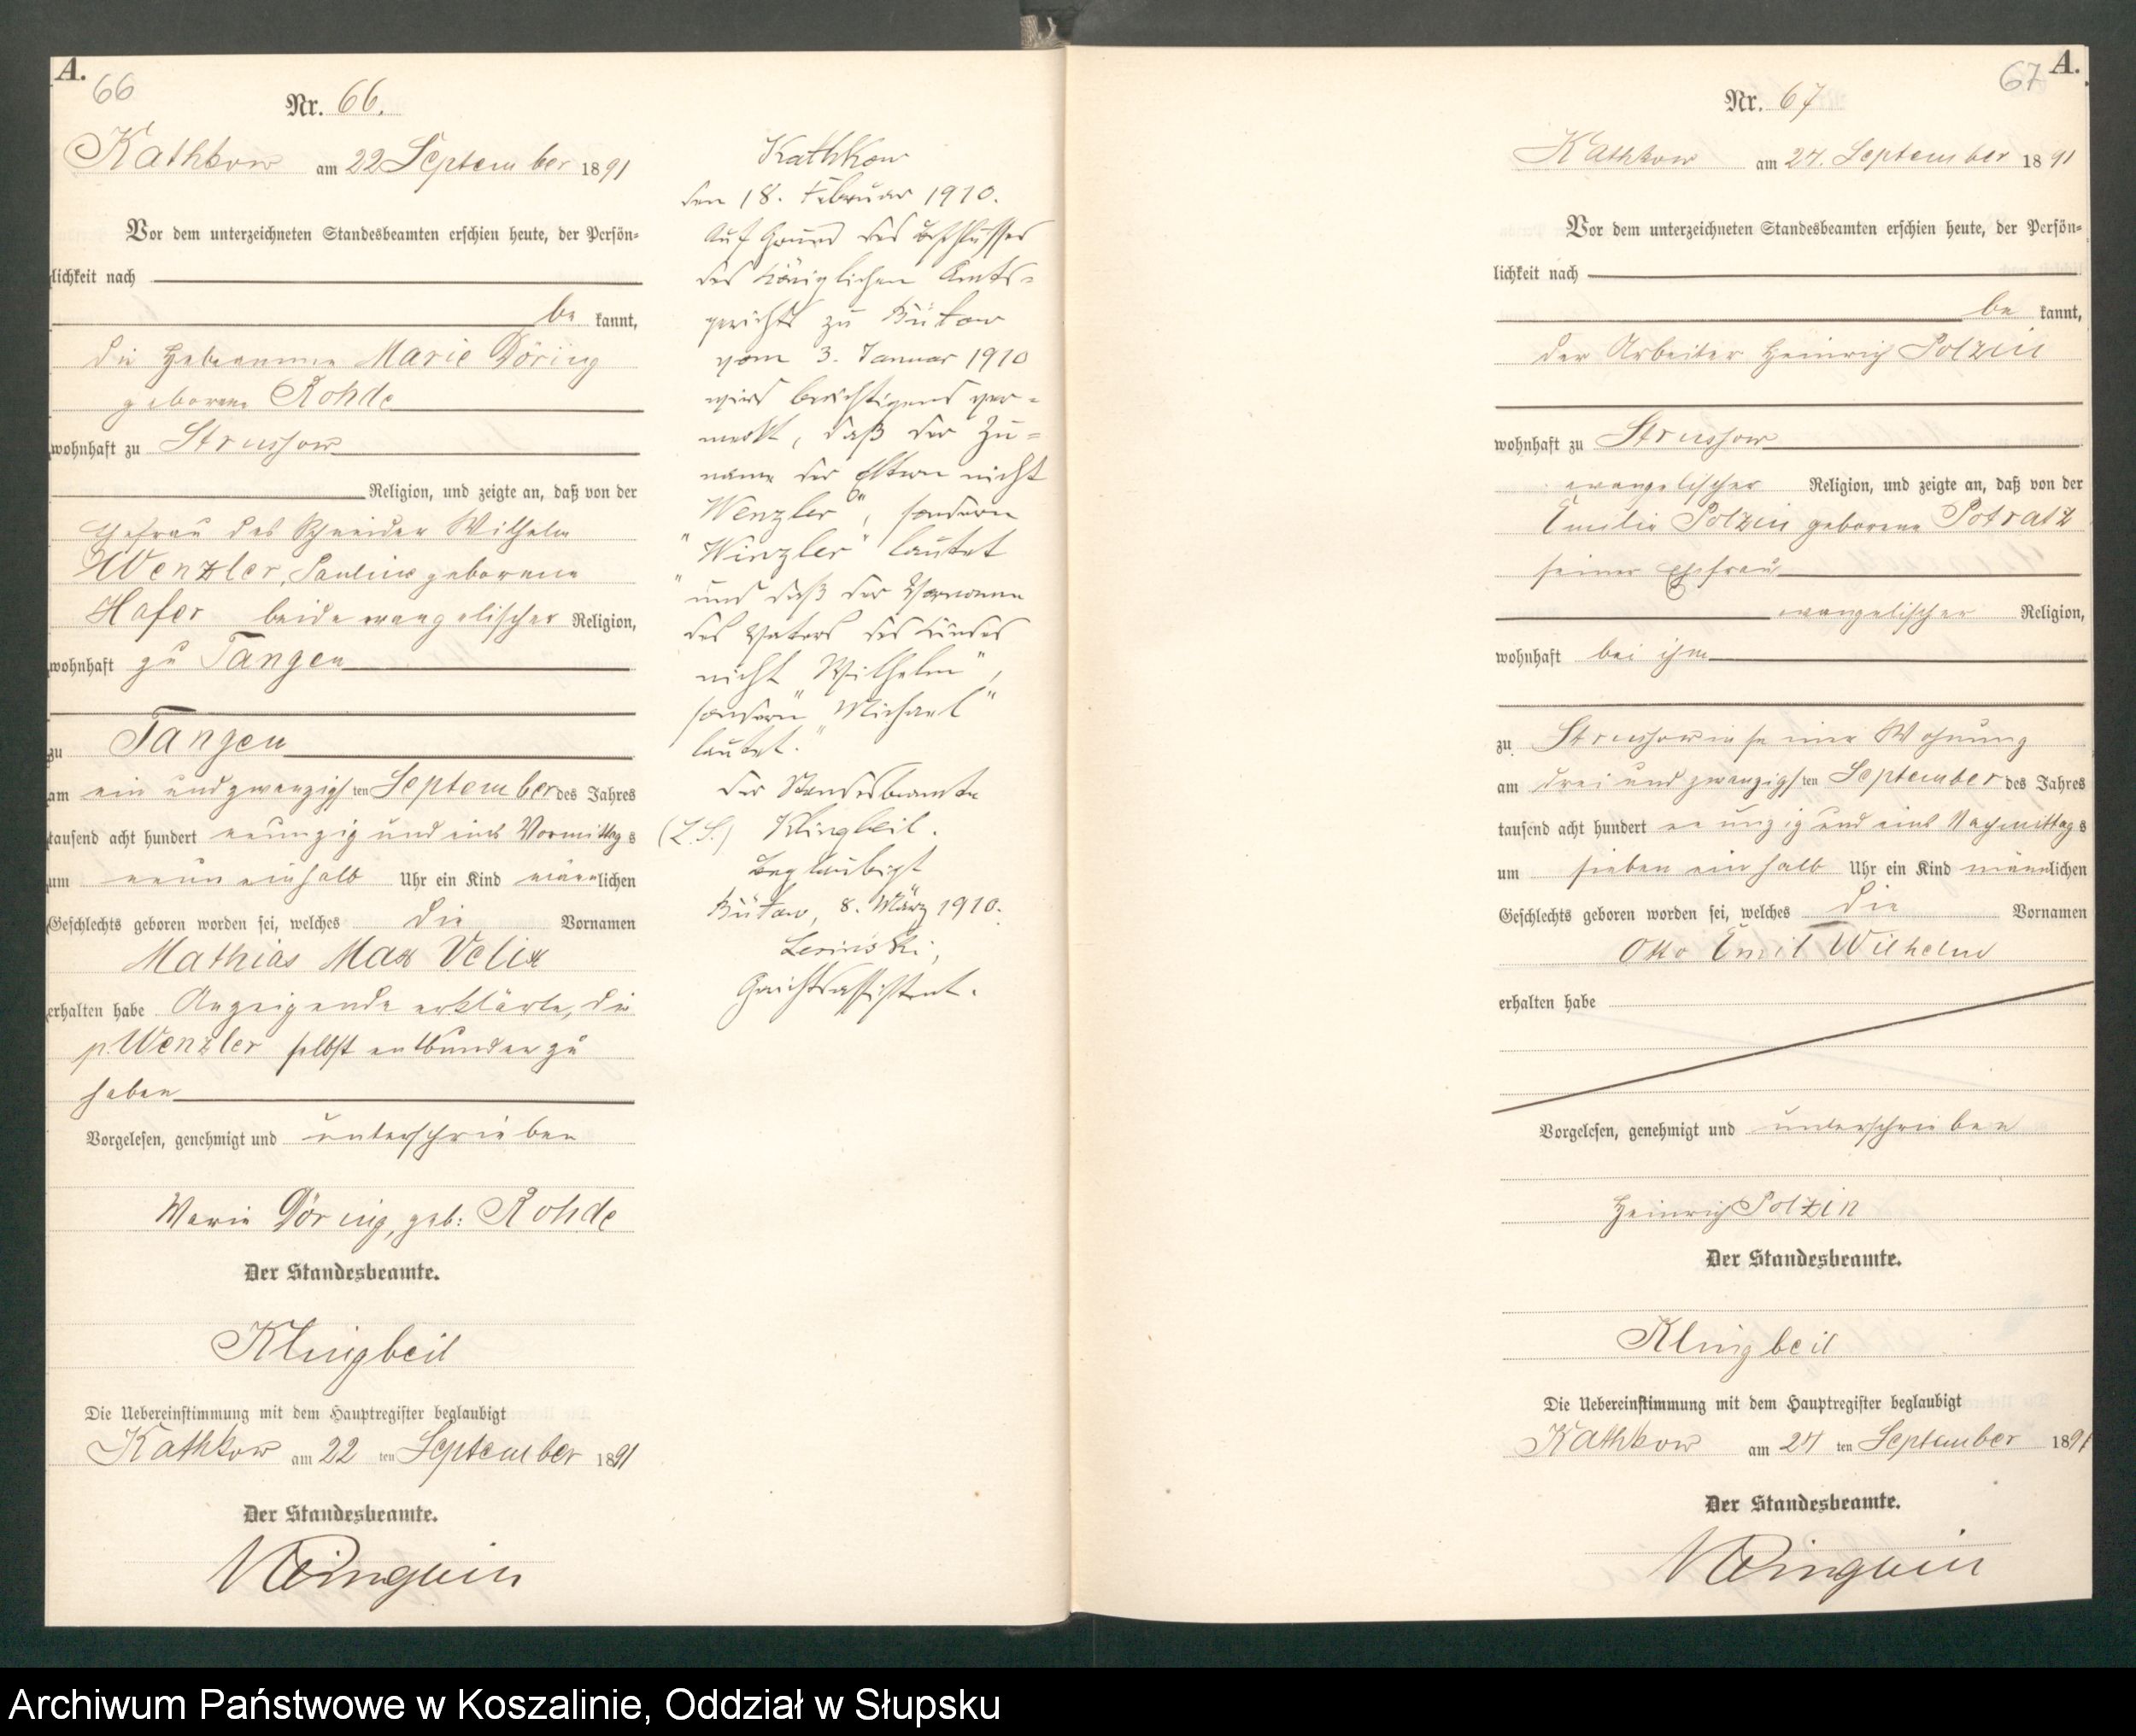 A.
66
Nr. 66.
Kathkow am 22 September 1891
Vor dem unterzeichneten Standesbeamten erschien heute, der Persön-
lichkeit nach
be kannt,
die Hebeamme Marie Döring
geborene Rohde
wohnhaft zu Strussow
Religion, und zeigte an, daß von der
Ehefrau des Schneider Wilhelm
Wenzler, Pauline geborene
Hafer beide evangelischer Religion,
wohnhaft zu Tangen
zu Tangen
am ein und zwanzigsten September des Jahres
tausend acht hundert neunzig und eins Vormittags
um neun einhalb Uhr ein Kind männlichen
Geschlechts geboren worden sei, welches die Vornamen
Mathias Max Velix
erhalten habe Anzeigende erklärte, die
p. Wenzler selbst entbunden zu
haben
Vorgelesen, genehmigt und unterschrieben
Marie Döring, geb: Rohde
Der Standesbeamte.
Klingbeil
Die Uebereinstimmung mit dem Hauptregister beglaubigt
Kathkow am 22 ten September 1891
Der Standesbeamte.
Klingbeil
Kathkow
den 18. Februar 1910.
Auf Grund des Beschlusses
des Königlichen Amts-
gerichts zu Bütow
vom 3. Januar 1910
wird berichtigend ver-
merkt, daß der Zu-
name der Eltern nicht
"Wenzler", sondern
"Winzler" lautet
und daß der Vorname
des Vaters des Kindes
nicht "Wilhelm",
sondern "Michael"
lautet.
Der Standesbeamte
(L.S.) Klingbeil.
Beglaubigt
Bütow, 8. März 1910.
Gerichtsassistent.
A.
67
Nr. 67
Kathkow am 24. September 1891
Vor dem unterzeichneten Standesbeamten erschien heute, der Persön-
lichkeit nach
be kannt,
der Arbeiter Heinrich Polzin
wohnhaft zu Strussow
evangelischer Religion, und zeigte an, daß von der
Emilie Polzin geborene Potratz
seiner Ehefrau
evangelischer Religion,
wohnhaft bei ihm
zu Strussow in seiner Wohnung
am drei und zwanzigsten September des Jahres
tausend acht hundert neunzig und eins Nachmittags
um sieben einhalb Uhr ein Kind männlichen
Geschlechts geboren worden sei, welches die Vornamen
Otto Emil Wilhelm
erhalten habe
Vorgelesen, genehmigt und unterschrieben
Heinrich Polzin
Der Standesbeamte.
Klingbeil
Die Uebereinstimmung mit dem Hauptregister beglaubigt
Kathkow am 24 ten September 1891
Der Standesbeamte.
Klingbeil
Archiwum Państwowe w Koszalinie, Oddział w Słupsku